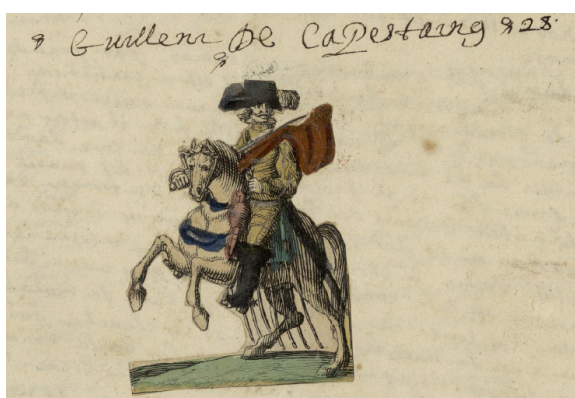 Guillem De Capestaing 828